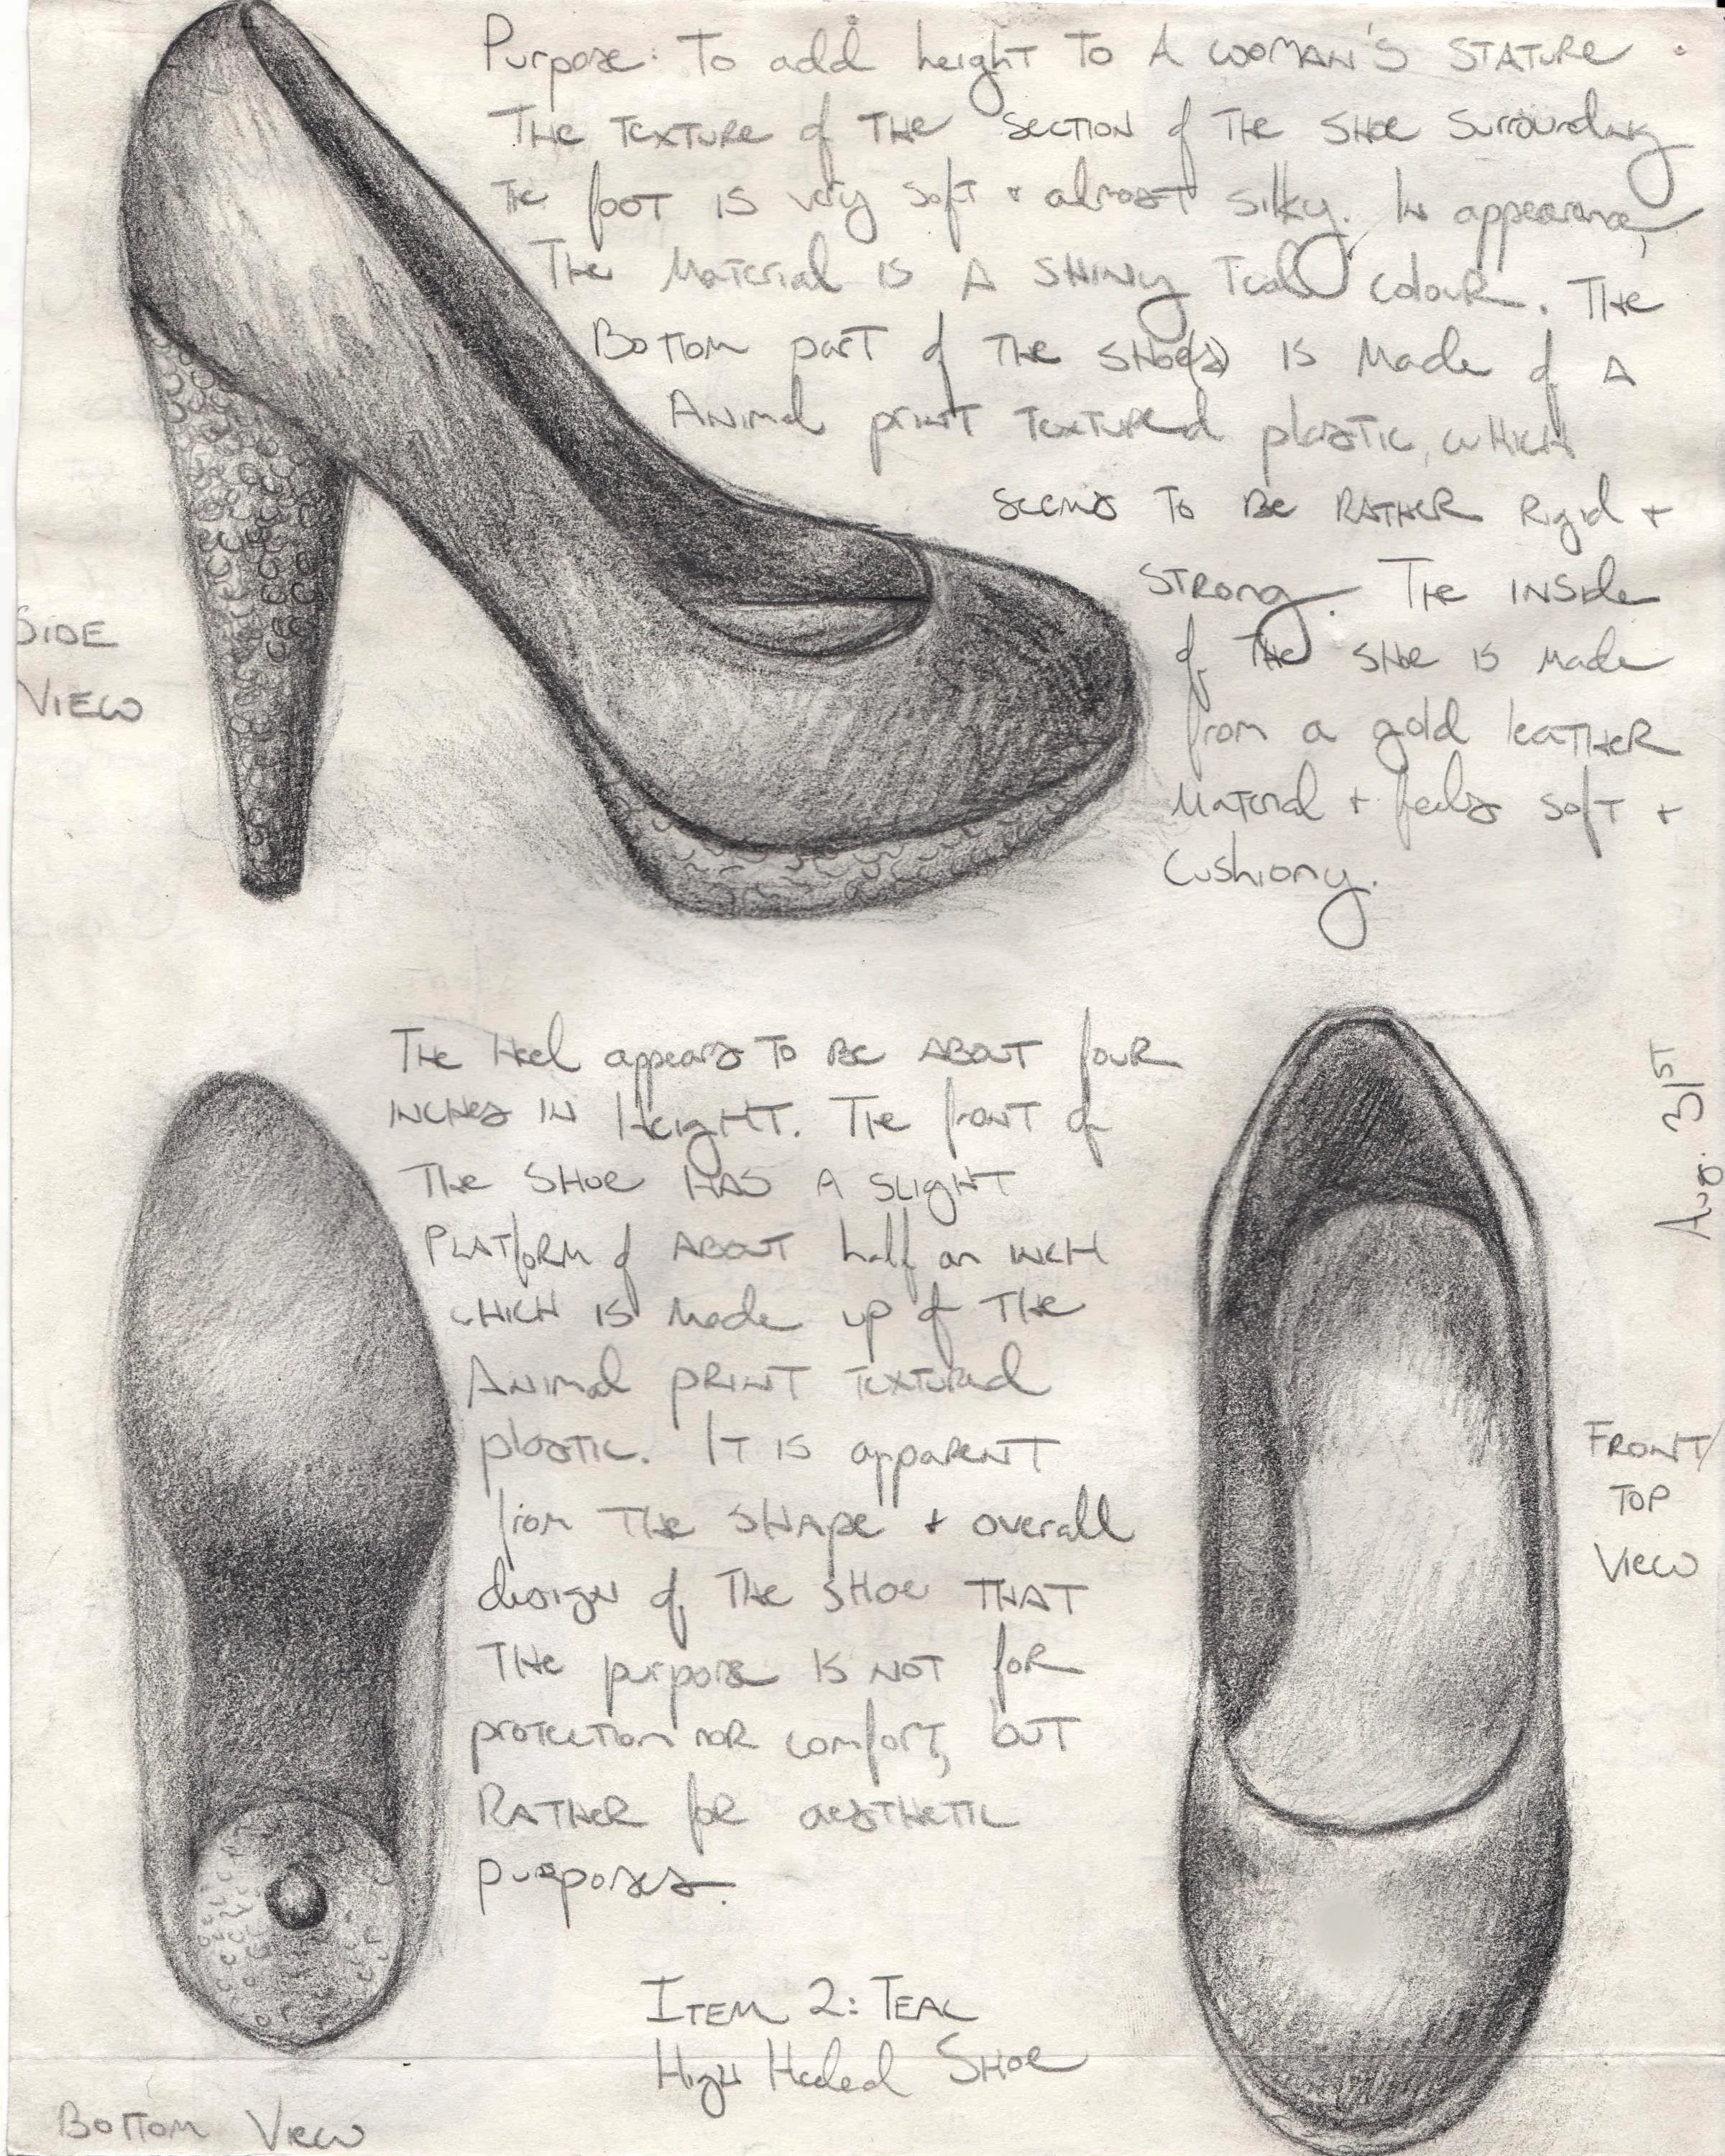 Purpose: To add height to a woman's stature.
The texture of the section of the shoe surrounding
the foot is very soft + almost silky. In appearance,
the material is a shiny teal colour. The
bottom part of the shoe(s) is made of a
animal print textured plastic, which
seems to be rather rigid +
strong. The inside
of the shoe is made
from a gold leather
material + feels soft +
cushiony.
SIDE
VIEW
The heel appears to be about four
inches in height. The front of
the shoe has a slight
platform of about half an inch
which is made up of the
animal print textured
plastic. It is apparent
from the shape + overall
design of the shoe that
the purpose is not for
protection nor comfort, but
rather for aesthetic
purposes.
Aug. 31st
FRONT/
TOP
VIEW
Item 2: Teal
High Heeled Shoe
Bottom View